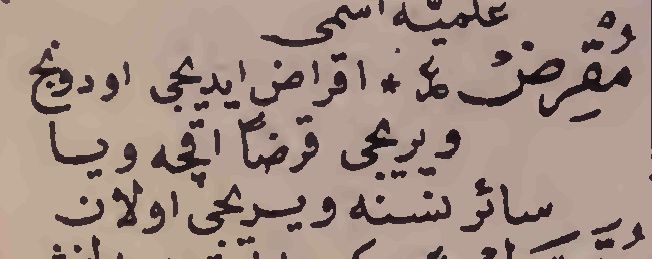 علميه اسمى
مُقْرِضٌ ع * اقراض ايديجى اودونج
ويريجى قرضاً اقچه ويا
سائر نسنه ويريجى اولان